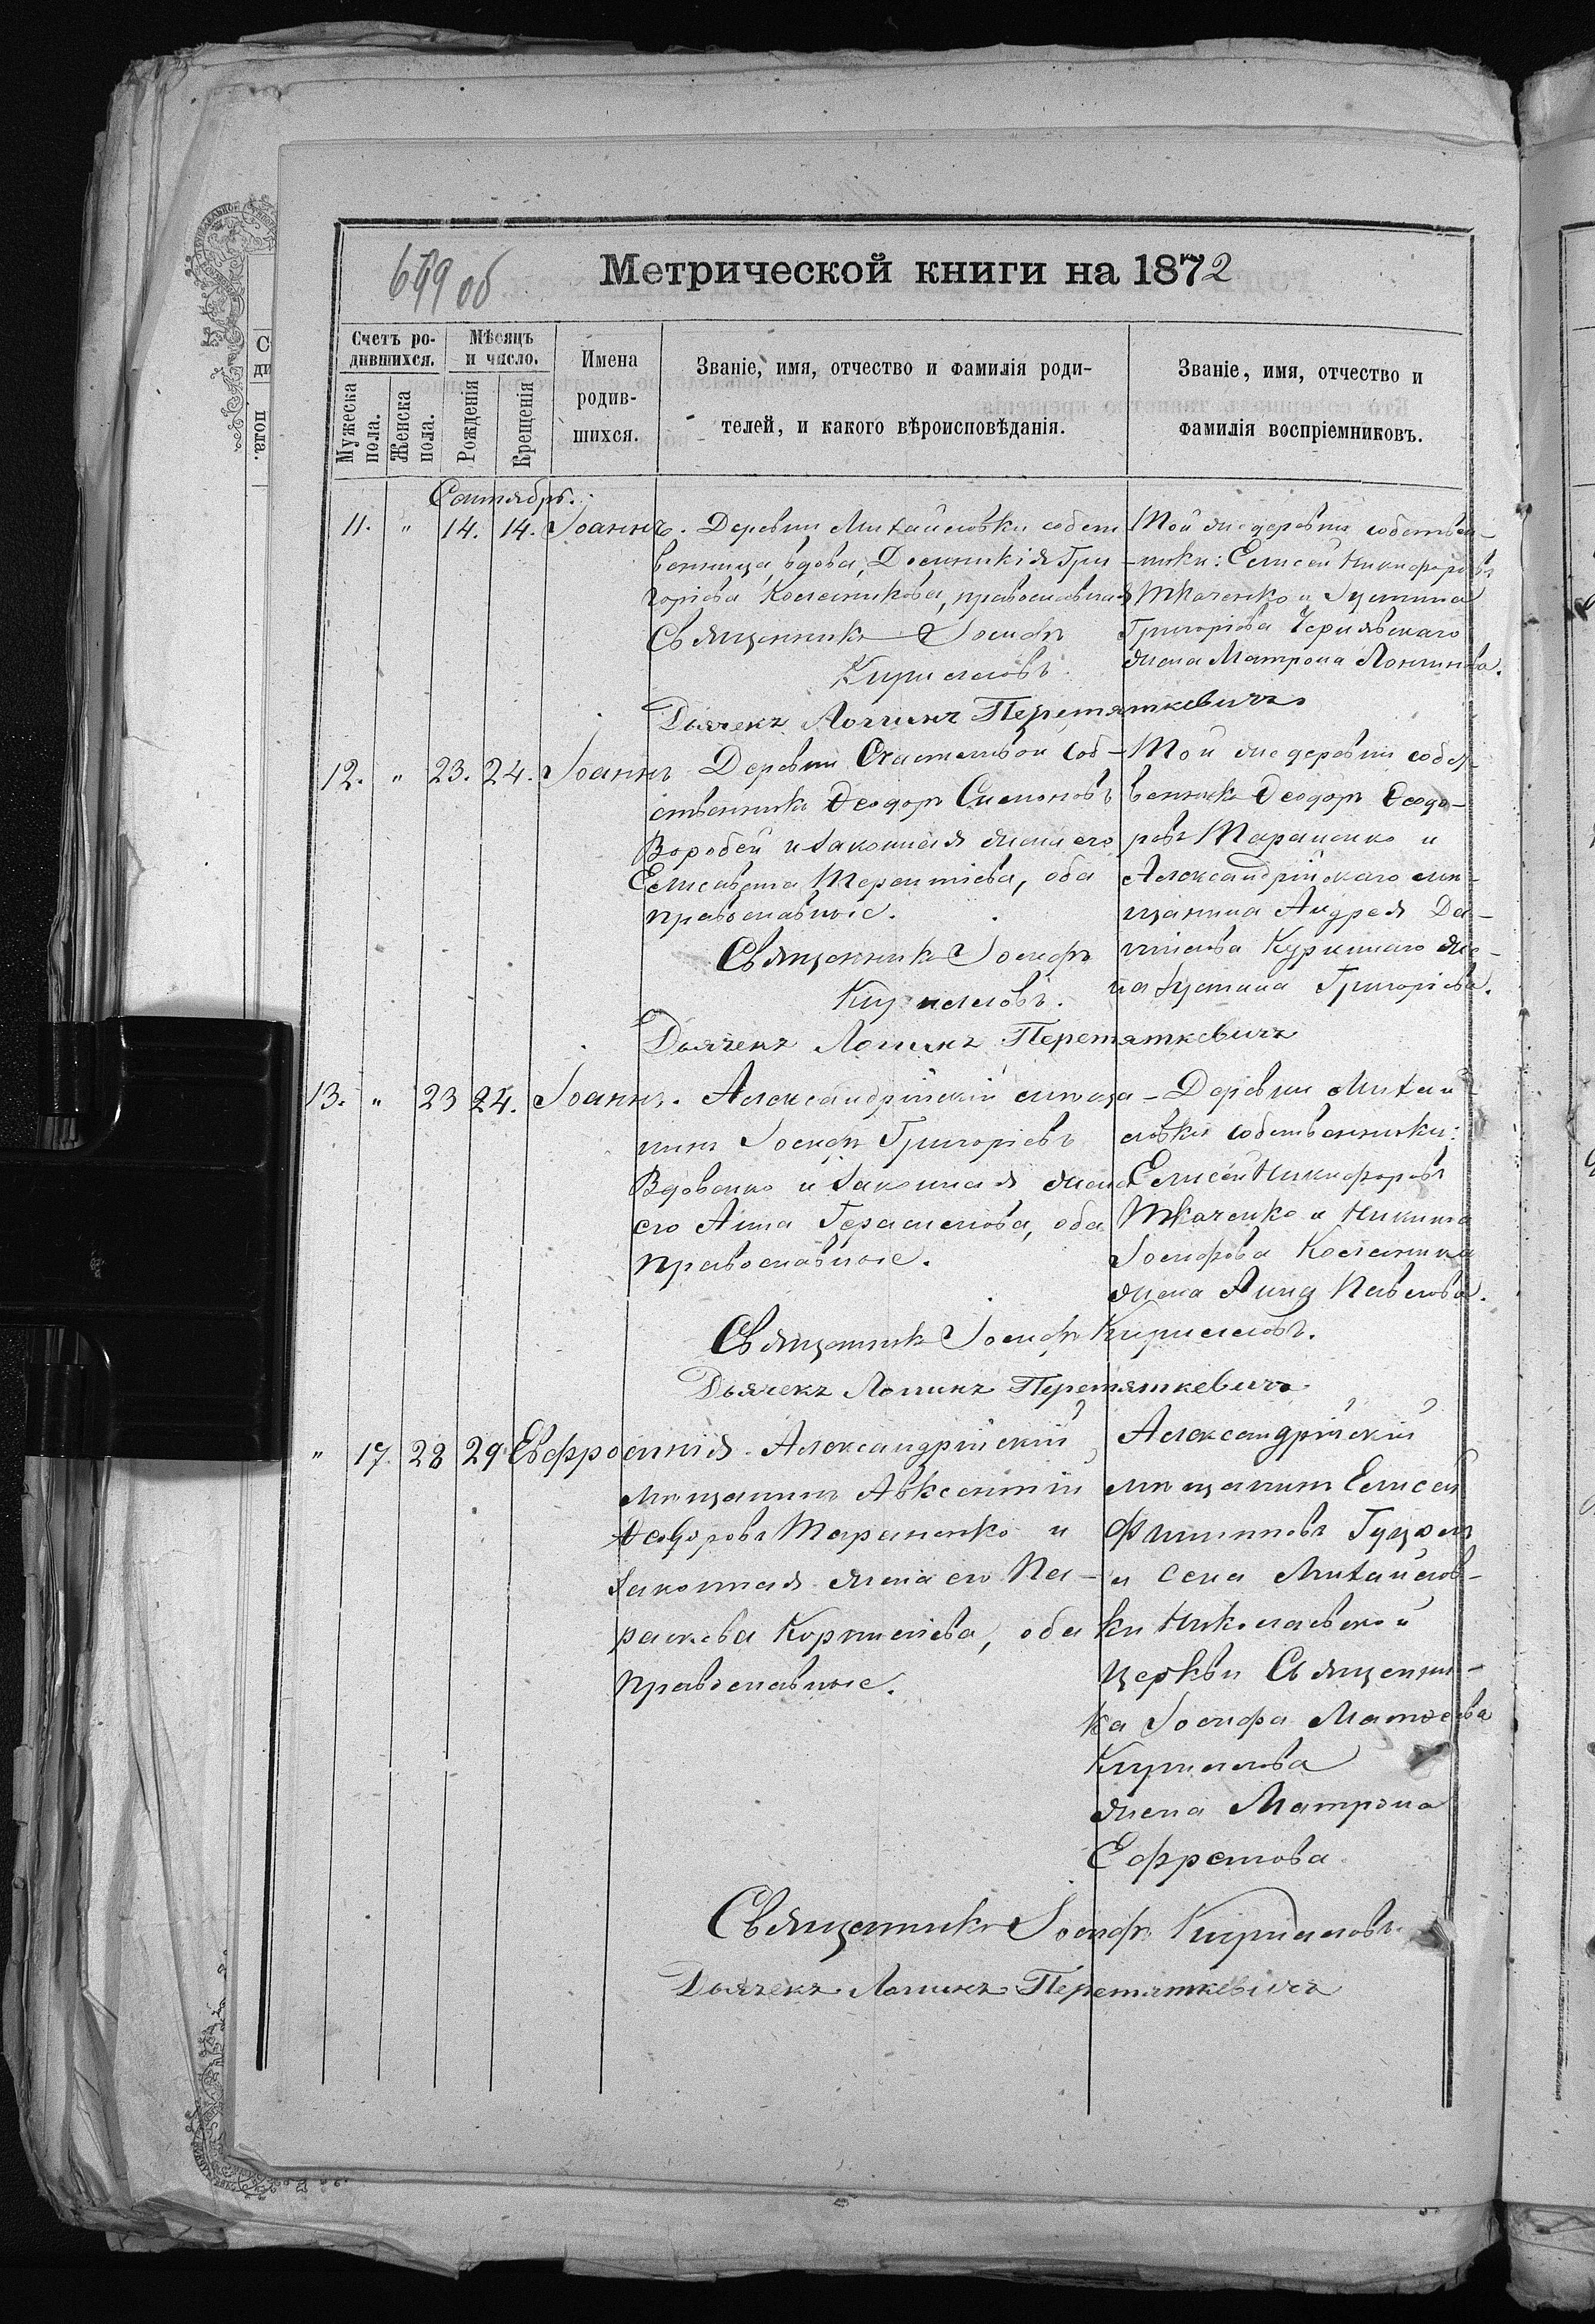 699 об
Метрической книги на 1872
Счетъ ро-
дившихся.
Мѣсяцъ
и число.
Мужеска
пола.
Женска
пола.
Рожденія
Крещенія
Имена
родив-
шихся.
Званіе, имя, отчество и фамилія роди-
телей, и какого вѣроисповѣданія.
Званіе, имя, отчество и
фамилія воспріемниковъ.
Сентябрь.
11. " 14. 14. Іоаннъ.
Деревни Михайловки собст
венница, вдова, Домникія Гри
горіева Колесникова, православная
Священникъ Іосифъ
Кирилловъ.
Дьячекъ Логинъ Перетяткевичъ
Той же деревни собствен-
ники: Елисей Никифоровъ
Ткаченко и Іустина
Григоріева Чернявскаго
жена Матрона Логинова.
12. " 23. 24. Іоаннъ
Деревни Счастливой соб-
ственникъ Ѳеодоръ Симоновъ
Воробей и законная жена его
Елисавета Терентіева, оба
православные.
Священникъ Іосифъ
Кирилловъ.
Дьячекъ Логинъ Перетяткевичъ
Той же деревни собст-
венникъ Ѳеодоръ Ѳеодо-
ровъ Тараненко и
Александрійскаго мѣ-
щанина Андрея Да-
нилова же-
на Іустина Григоріева.
13. " 23 24. Іоаннъ.
Александрійскій мѣща-
нинъ Іосифъ Григоріевъ
Вдовенко и законная жена
его Анна Герасимова, оба
православные.
Деревни Михай-
ловки собственники:
Елисей Никифоровъ
Ткаченко и Никита
Іосифова Колесника
жена Анна Павлова.
Священникъ Іосифъ Кирилловъ.
Дьячекъ Логинъ Перетяткевичъ
" 17. 28 29. Евфросинія.
Александрійскій
мѣщанинъ Авксентій
Ѳеодоровъ Тараненко и
законная жена его Па-
раскева Корнилієва, оба
православные.
Александрійскій
мѣщанинъ Елисей
Филиповъ
и села Михайлов-
ки Николаевской
церкви Священни-
ка Іосифа Матѳеева
Кириллова
жена Матрона
Ефремова.
Священникъ Іосифъ Кирилловъ.
Дьячекъ Логинъ Перетяткевичъ